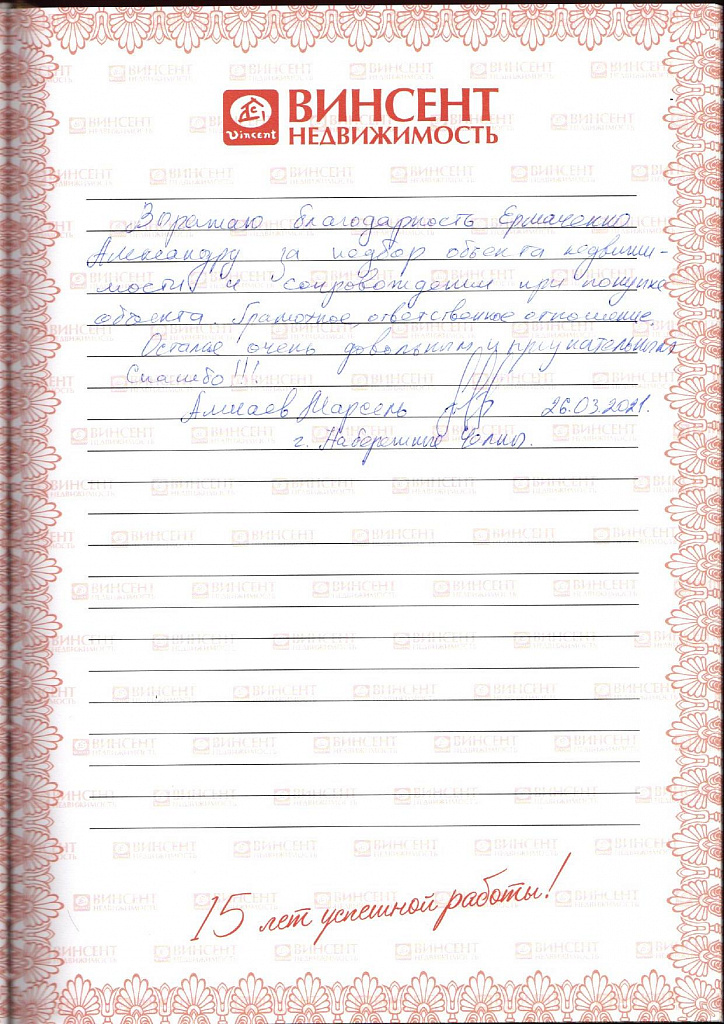 ВИНСЕНТ
Vincent
НЕДВИЖИМОСТЬ
Выражаю благодарность Ермаченко
Александру за подбор объекта недвижи-
мости и сопровождении при покупке
объекта. Грамотное, ответственное отношение.
Остался очень довольным и
Спасибо!!!
Марсель 26.03.2021.
г. Набережные Челны.
15 лет успешной работы!